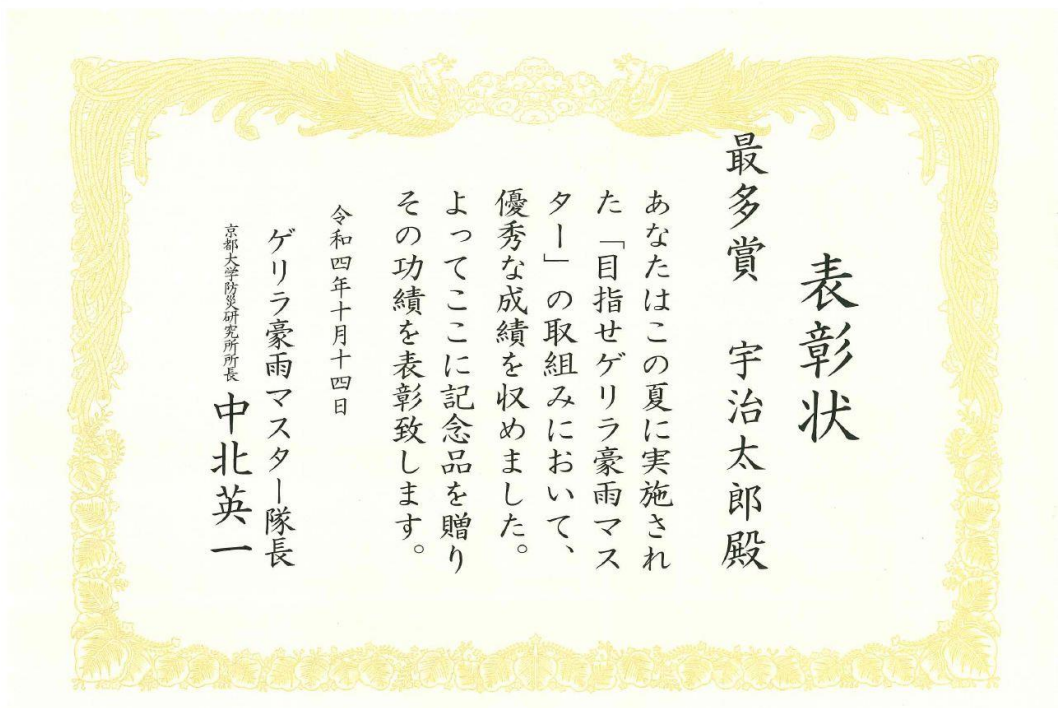 表彰状
最多賞　宇治太郎殿
あなたはこの夏に実施され
た「目指せゲリラ豪雨マス
ター」の取組みにおいて、
優秀な成績を収めました。
よってここに記念品を贈り
その功績を表彰致します。
令和四年十月十四日
ゲリラ豪雨マスター隊長
京都大学防災研究所所長 中北英一